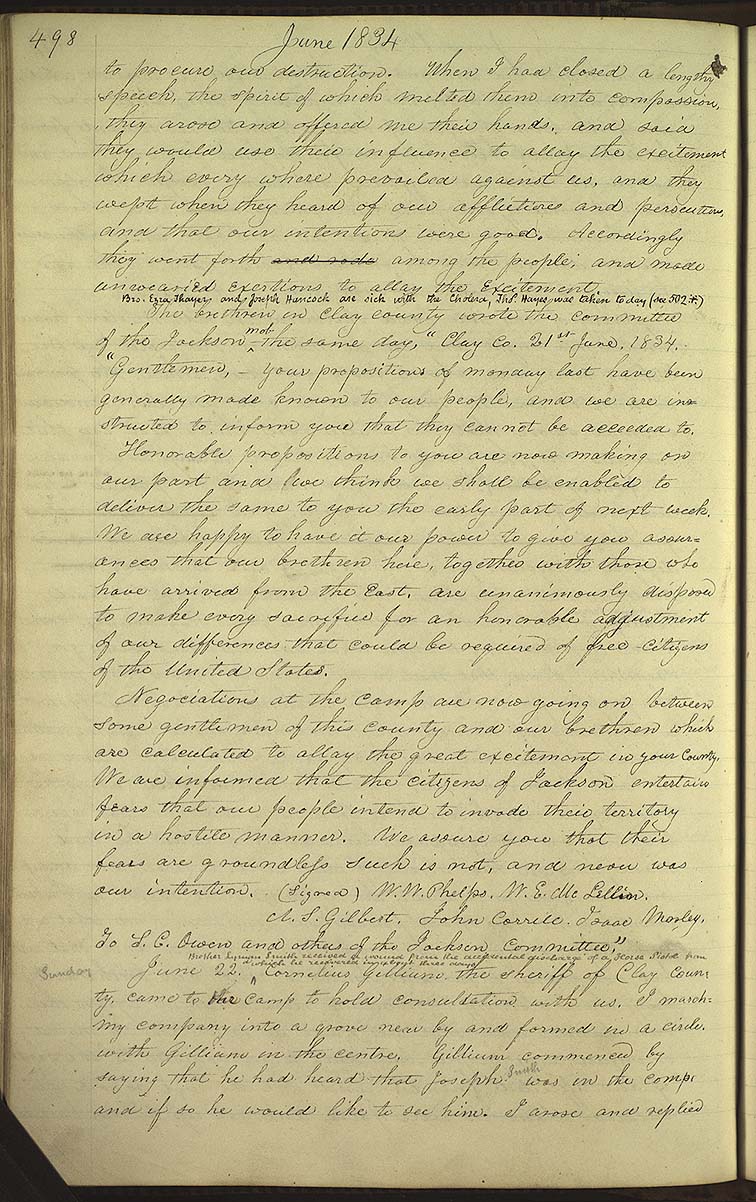 498 June 1834
to procure our destruction. When I had closed a lengthy
speech, the spirit of which melted them into compassion,
they arose and offered me their hands, and said
they would use their influence to allay the excitement
which every where prevailed against us, and they
wept when they heard of our afflictions and persecutions,
and that our intentions were good. Accordingly
they went forth and rode among the people, and made
unwearied exertions to allay the excitement.
Bro. Ezra Thayer and Joseph Hancock are sick with the Cholera, Ths. Hayes was taken to day (see 502 *)
The brethren in Clay county wrote the committee
of the Jackson mob the same day, "Clay Co. 21st June, 1834.
"Gentlemen, – Your propositions of monday last have been
generally made known to our people, and we are in=
structed to inform you that they cannot be acceeded to.
Honorable propositions to you are now making on
our part and we think we shall be enabled to
deliver the same to you the early part of next week.
We are happy to have it our power to give you assur=
ances that our brethren here, together with those who
have arrived from the East, are unanimously disposed
to make every sacrifice for an honorable adjustment
of our differences that could be required of free citizens
of the United States.
Negociations at the camp are now going on between
some gentlemen of this county and our brethren which
are calculated to allay the great excitement in your County.
We are informed that the citizens of Jackson entertain
fears that our people intend to invade their territory
in a hostile manner. We assure you that their
fears are groundless such is not, and never was
our intention. (Signed) W. W. Phelps, W. E. Mc Lellin.
A. S. Gilbert, John Corrill, Isaac Morley,
To S. C. Owen and others of the Jackson Committee,"
Brother Lyman Smith received a wound from the accidental discharge of a Horse Pistol from
which he recovered in about three days
Sunday June 22. Cornelius Gillium, the sheriff of Clay Coun=
ty, came to our camp to hold consultation with us. I march=
my company into a grove near by and formed in a circle,
with Gillium in the centre. Gillium commenced by
saying that he had heard that Joseph Smith was in the camp,
and if so he would like to see him. I arose and replied